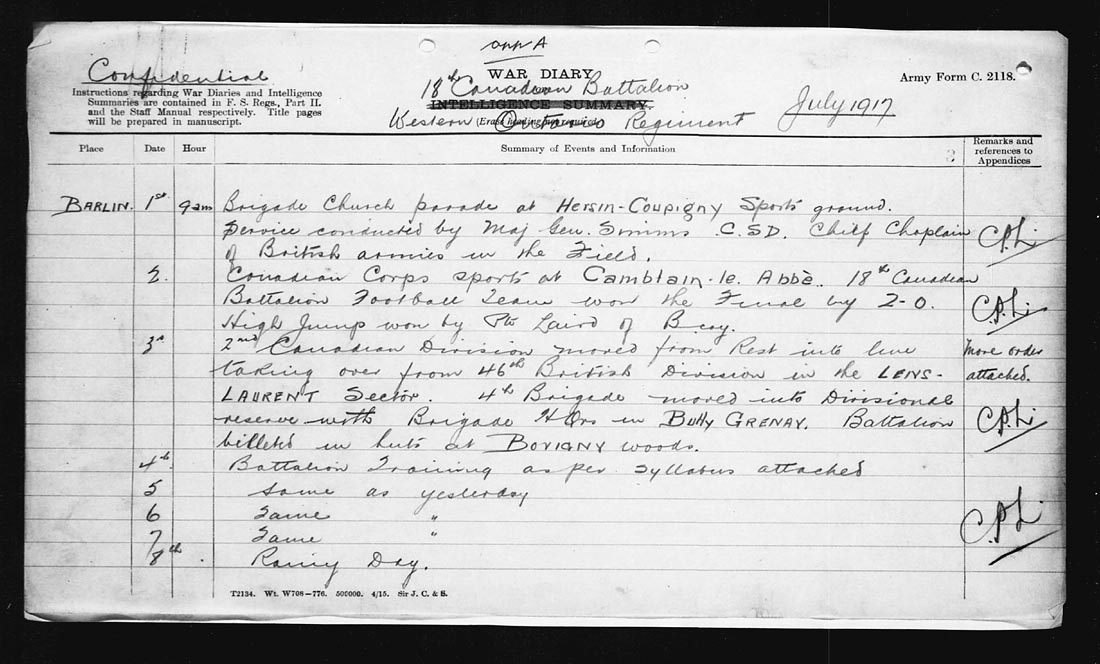 app A
Confidential
WAR DIARY
Army Form C. 2118.
18th Canadian Battalion
INTELLIGENCE SUMMARY.
Instructions regarding War Diaries and Intelligence
Summaries are contained in F. S. Regs., Part II.
and the Staff Manual respectively. Title pages
will be prepared in manuscript.
Western Ontario Regiment
(Erase heading not required.)
July 1917
Place Date Hour Summary of Events and Information Remarks and references to Appendices
BARLIN. 1st 9am Brigade Church parade at Hersin-Coupigny Sports ground.
Service conducted by Maj Gen. Simms C.S.D. Chief Chaplain
of British armies in the Field.
2. Canadian Corps sports at Camblain-le. Abbè. 18th Canadian
Battalion Football Team won the Final by 2-0.
High Jump won by Pte Laird of B coy.
3rd 2nd Canadian Division moved from Rest into line More order
taking over from 46th British Division in the LENS- attached.
LAURENT Sector. 4th Brigade moved into Divisional
reserve with Brigade HQrs in Bully GRENAY. Battalion
billeted in huts at BOVIGNY woods.
4th Battalion Training as per Syllabus attached
5 Same as yesterday
6 Same "
7 Same "
8th Rainy Day.
T2134. Wt. W708—776. 500000. 4/15. Sir J. C. & S.